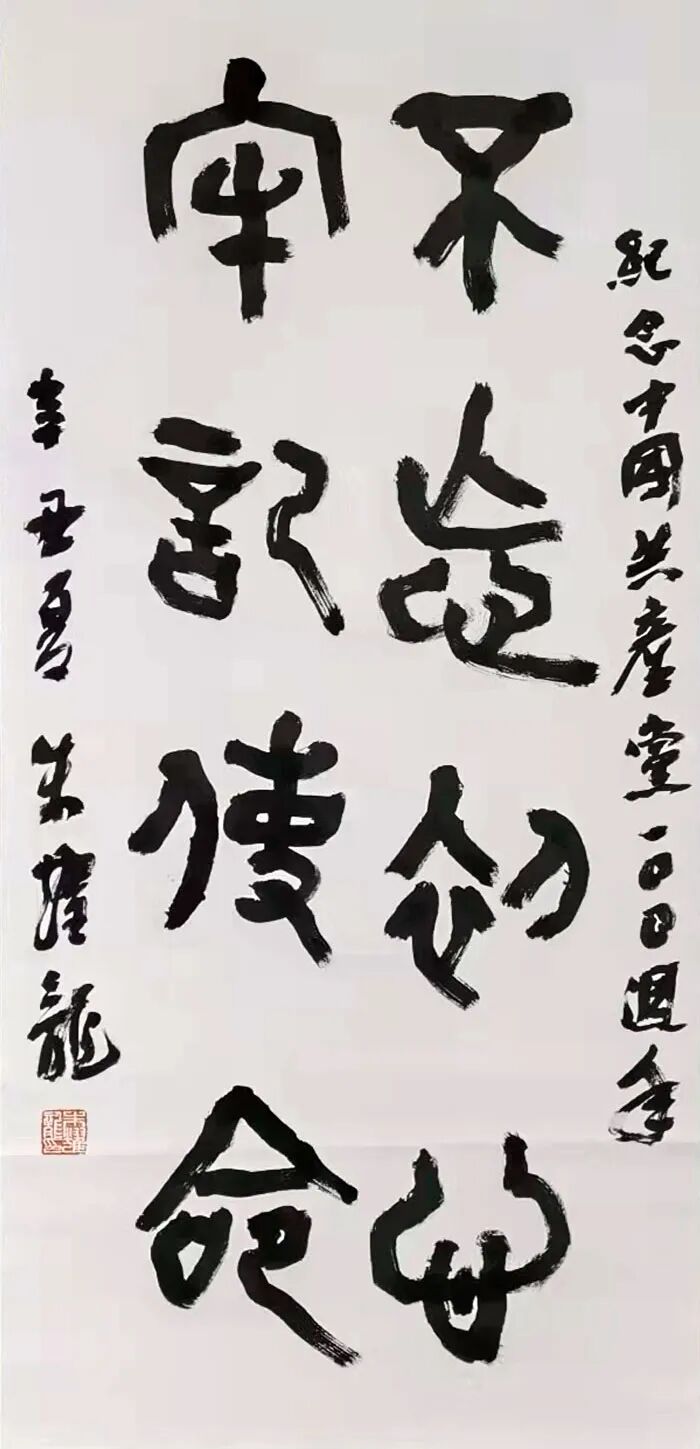 紀念中国共產黨一〇〇週年
不忘初心
牢記使命
辛丑夏 朱耀龍